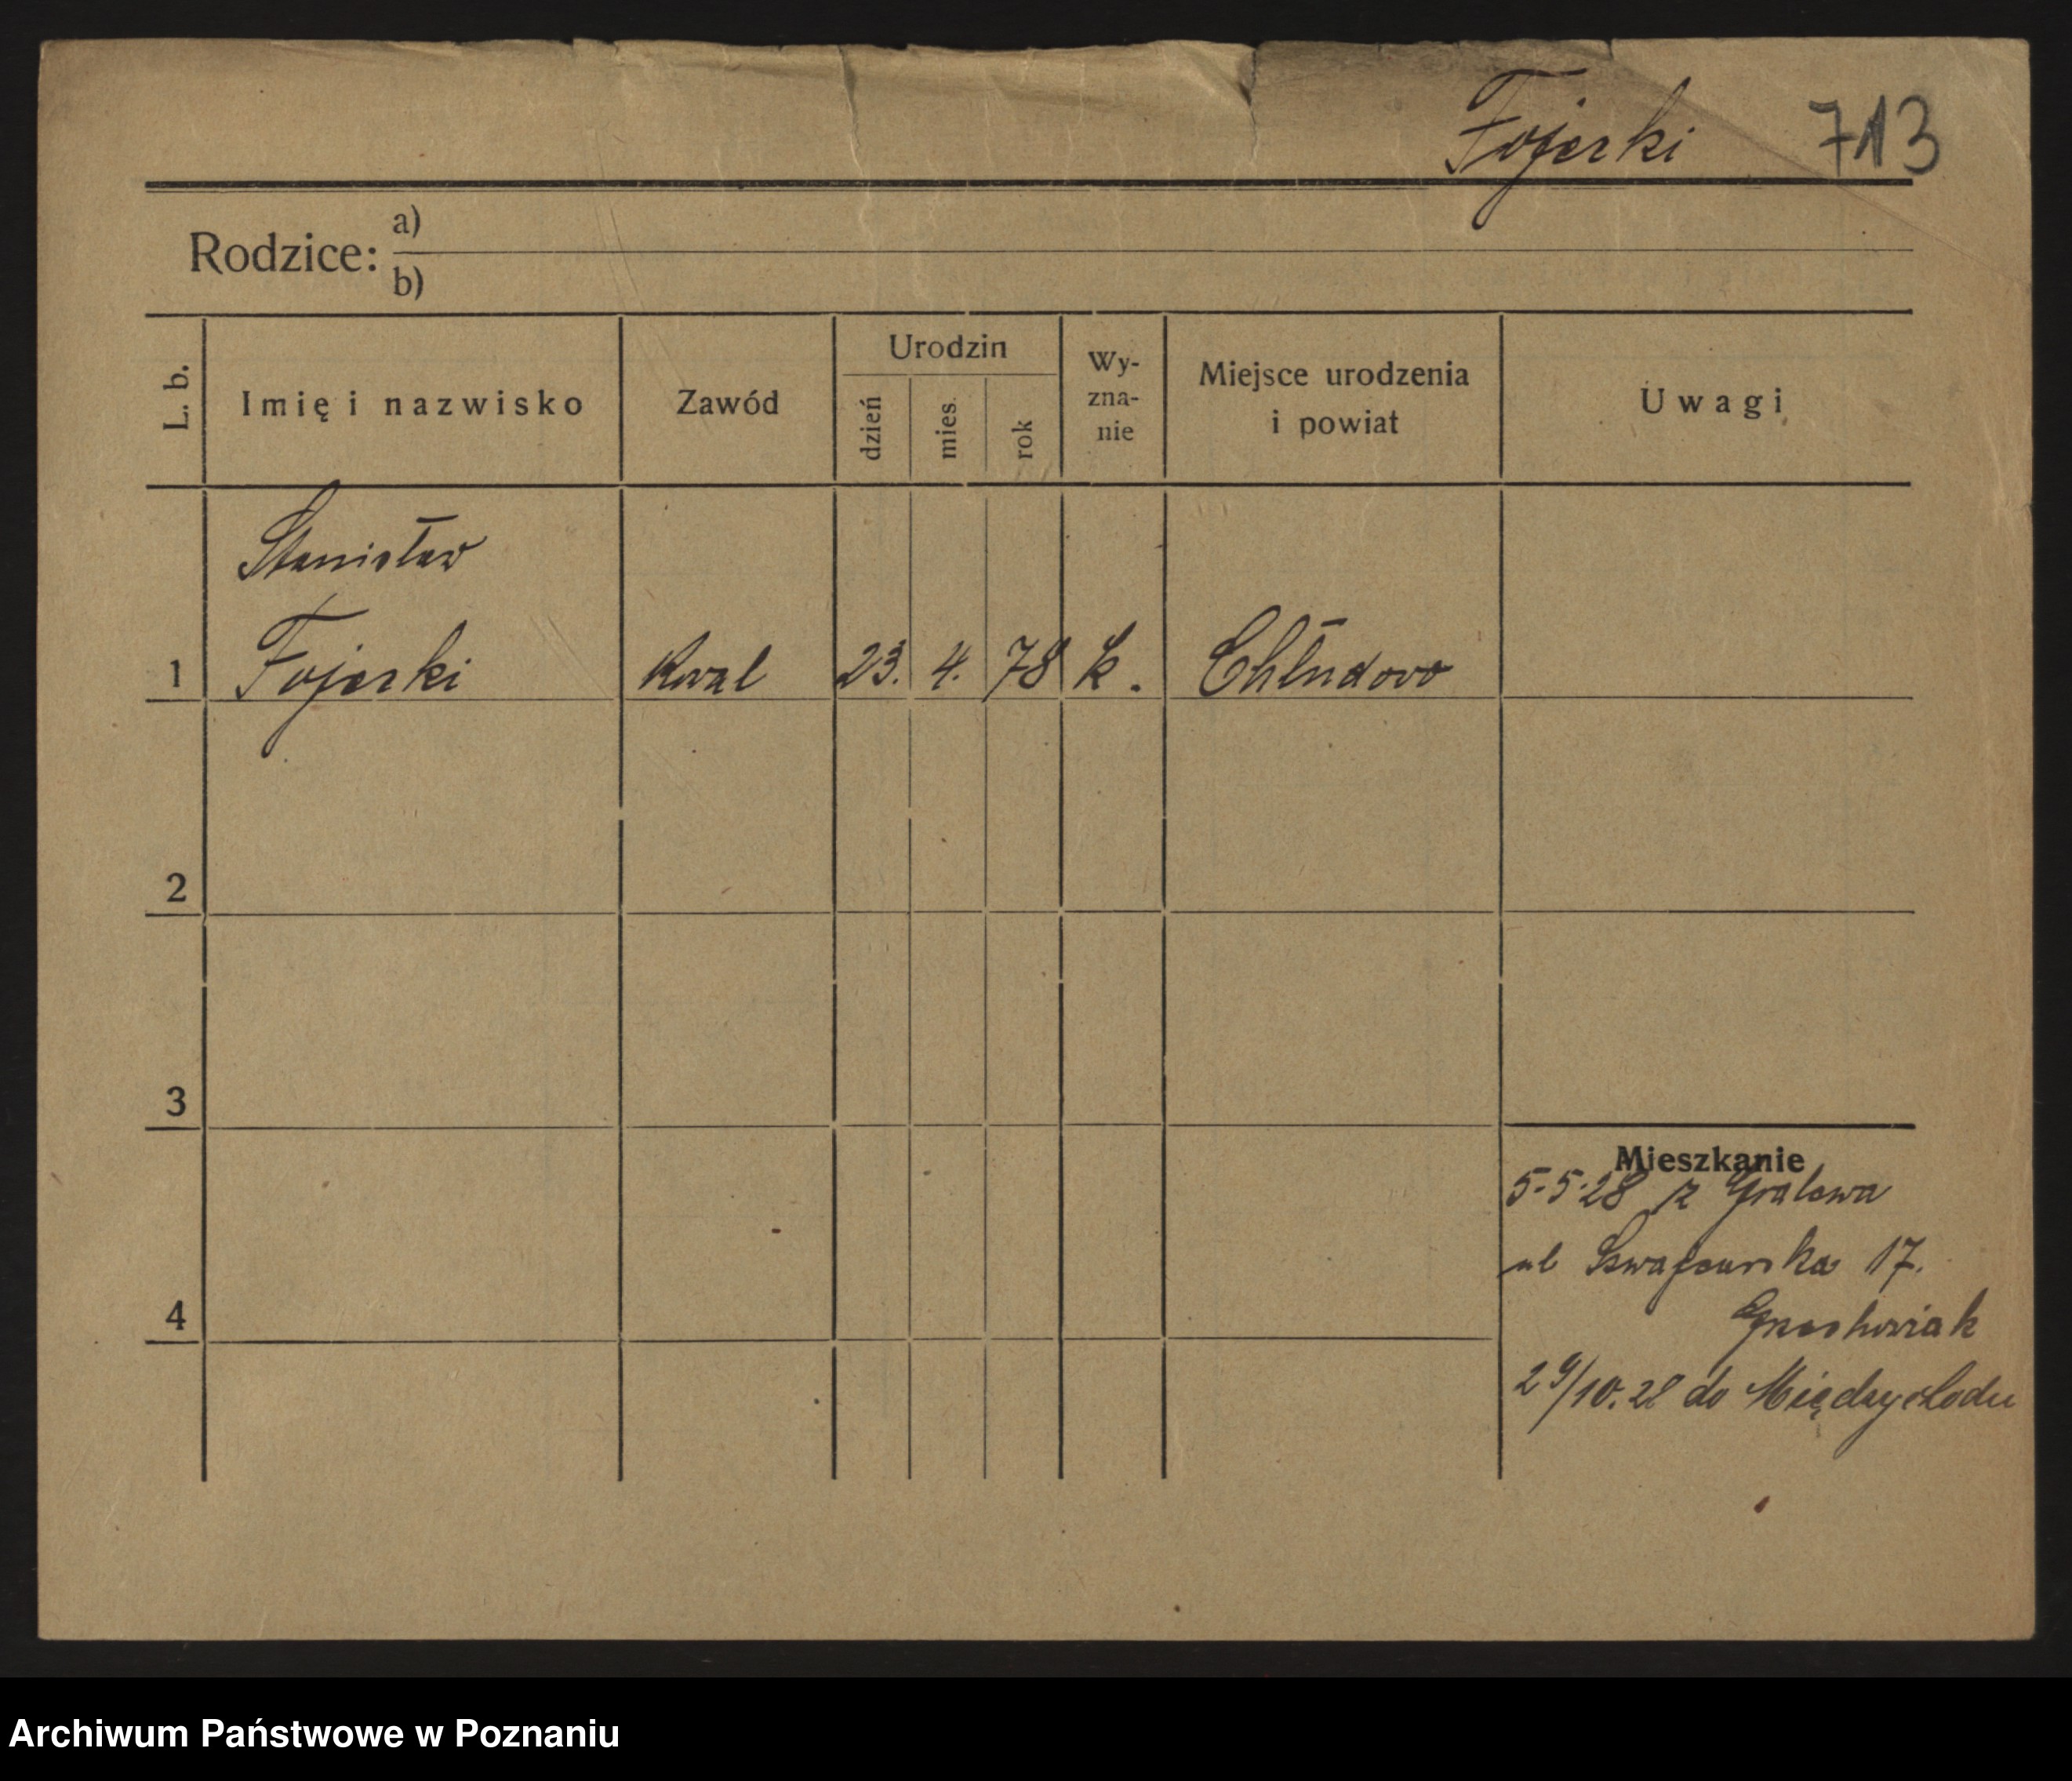 Fojerki 713
Rodzice: a)
b)
L. b. Imię i nazwisko Zawód Urodzin dzień mies. rok Wy-zna-nie Miejsce urodzenia i powiat Uwagi
Stanisław
1 Fojerki Kowal 23. 4. 78 k. Chłudowo
2
3
Mieszkanie
5-5-28 z Gralewa
ul Szwajcarska 17.
4
29/10.28 do Międzychodu
Archiwum Państwowe w Poznaniu